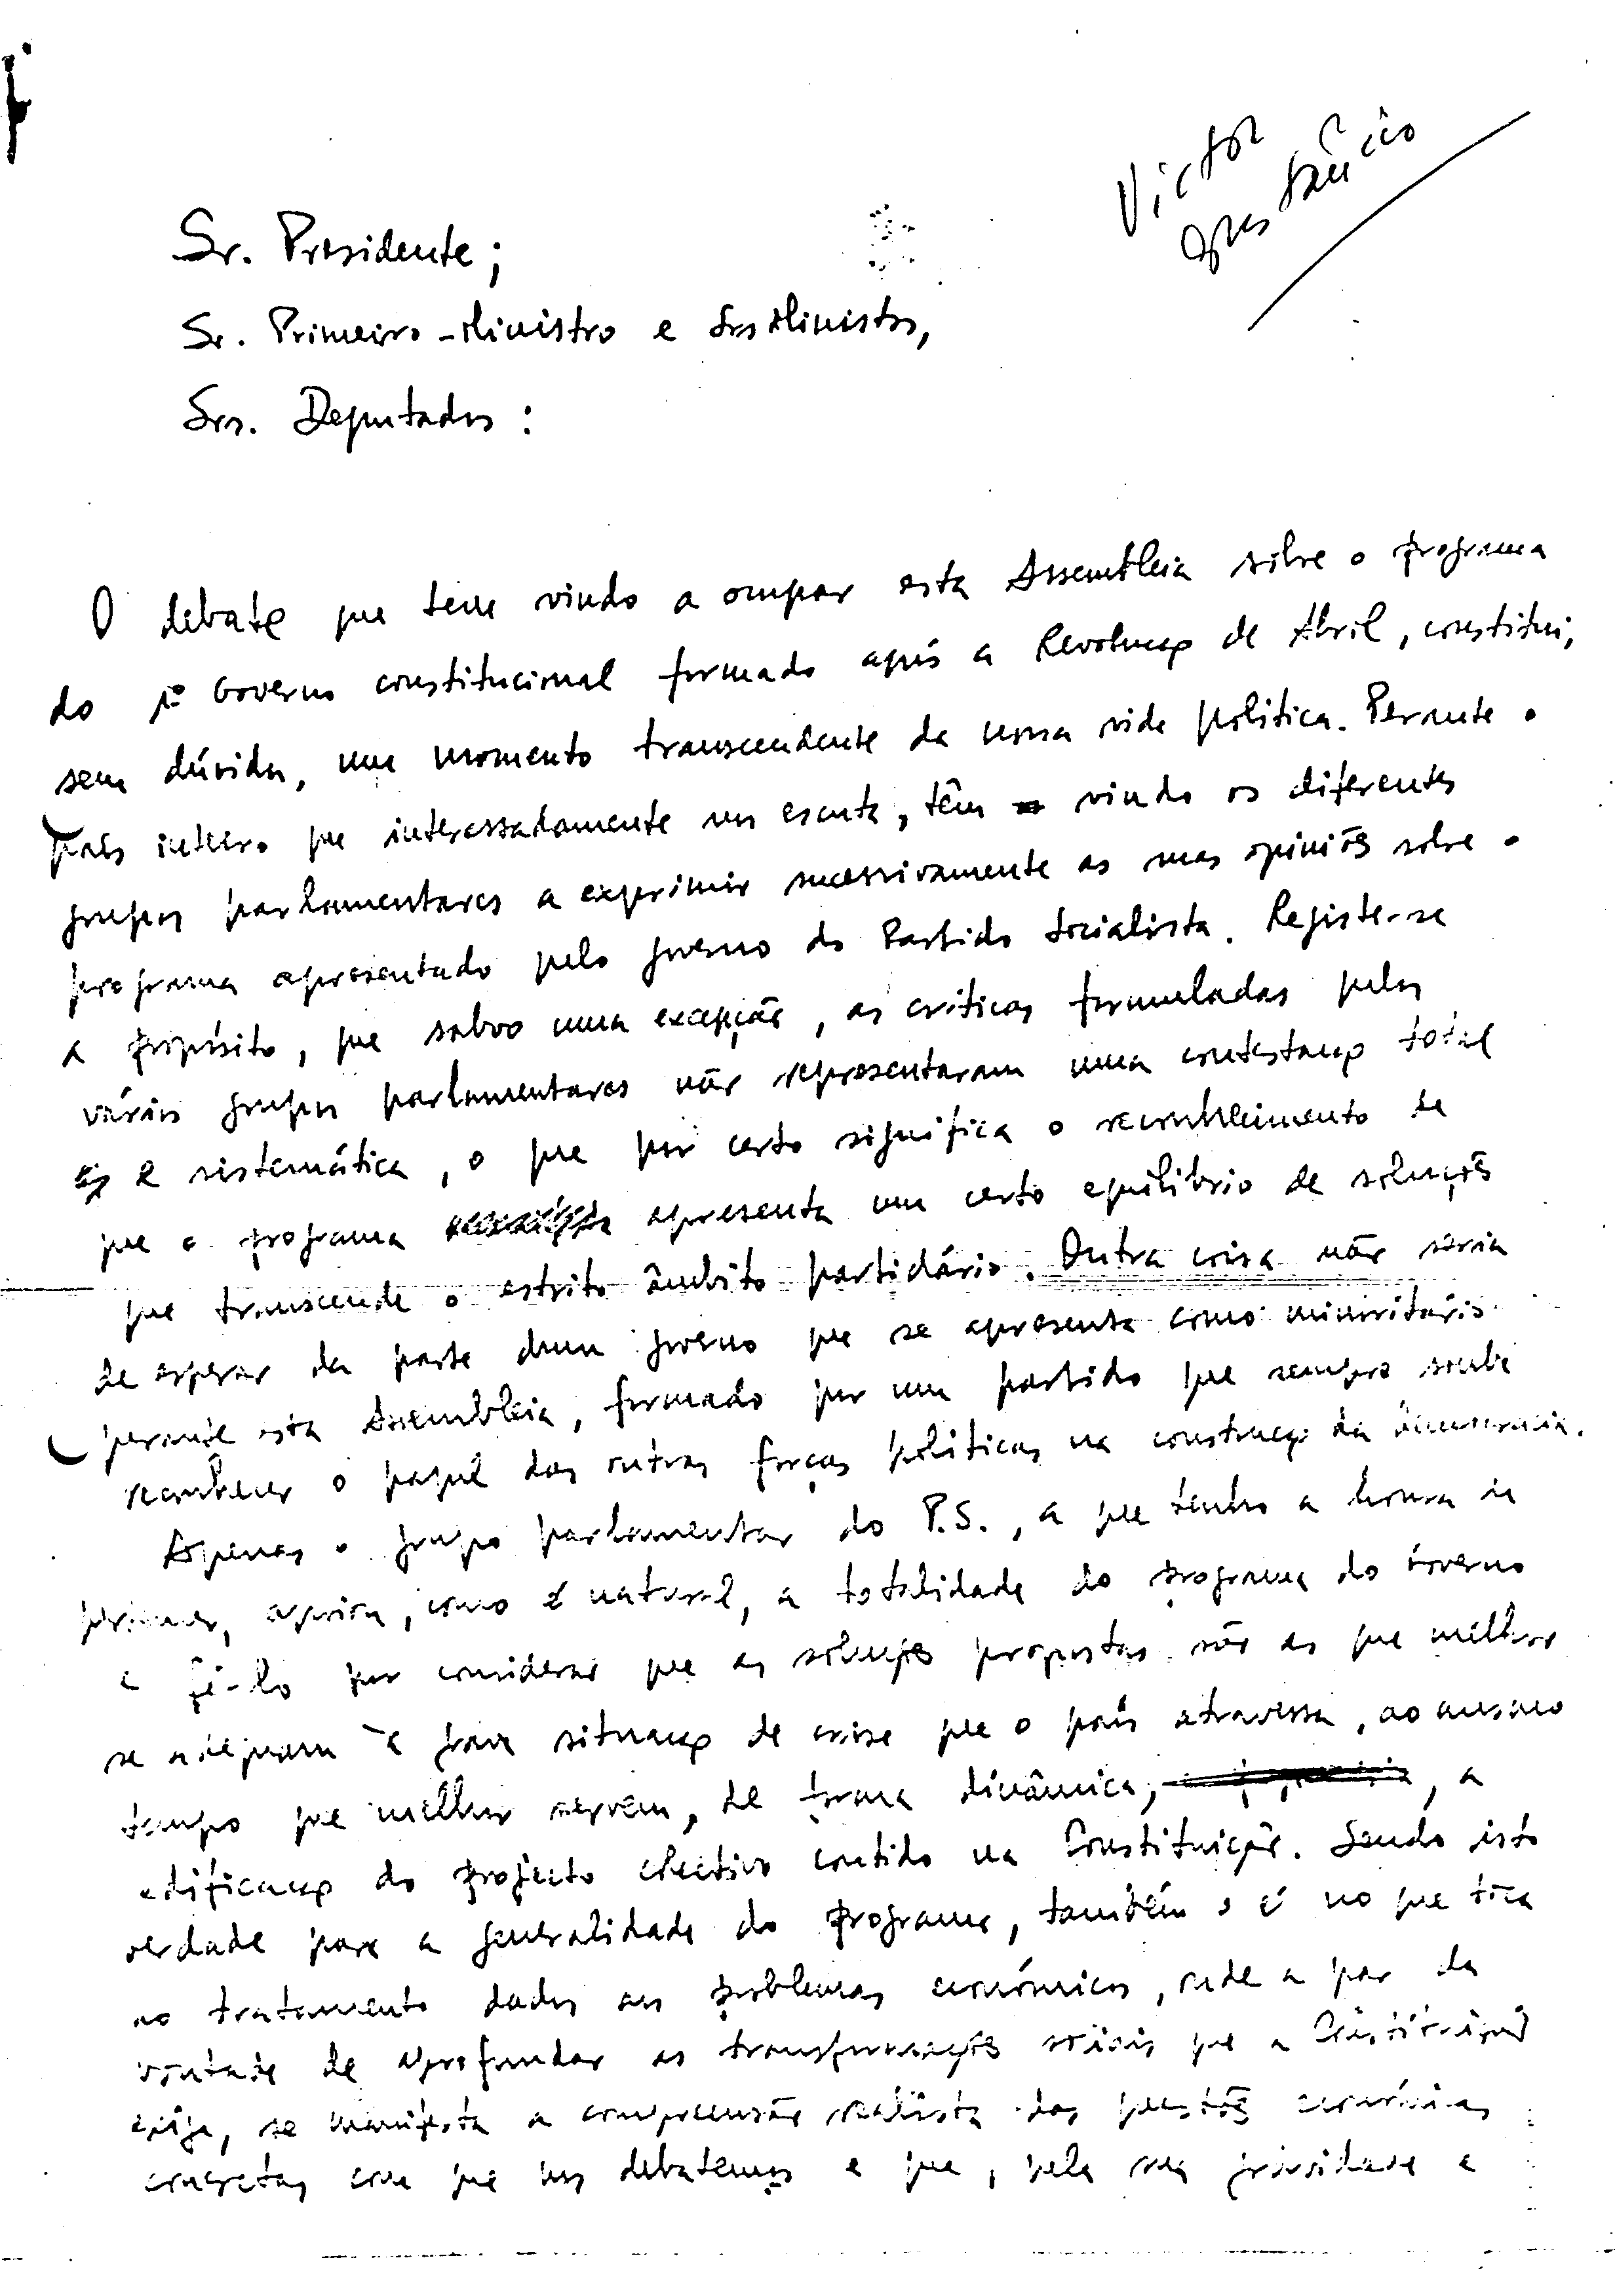 Victor
Constâncio
Sr. Presidente;
Sr. Primeiro-Ministro e Srs Ministros,
Srs. Deputados:
O debate que tem vindo a ocupar esta Assembleia sôbre o programa
do 1º Governo constitucional formado após a Revolução de Abril, constitui,
sem dúvida, um momento transcendente da nossa vida política. Perante o
país inteiro que interessadamente nos escuta, têm vindo os diferentes
grupos parlamentares a exprimir sucessivamente as suas opiniões sobre o
programa apresentado pelo governo do Partido Socialista. Registe-se
a propósito, que salvo uma excepção, as críticas formuladas pelos
vários grupos parlamentares não representaram uma contestação total
e sistemática, o que por certo significa o reconhecimento de
que o programa apresenta um certo equilíbrio de soluções
que transcende o estrito âmbito partidário. Outra coisa não seria
de esperar da parte dum governo que se apresenta como minoritário
perante esta Assembleia, formado por um partido que sempre soube
reconhecer o papel das outras forças políticas na construção da democracia.
Apenas o grupo parlamentar do P.S., a que tenho a honra de
pertencer, apoia, como é natural, a totalidade do programa do Governo
e fá-lo por considerar que as soluções propostas são as que melhor
se adequam à grave situação de crise que o país atravessa, ao mesmo
tempo que melhor servem, de forma dinâmica, a
edificação do projecto colectivo contido na Constituição. Sendo isto
verdade para a generalidade do programa, também o é no que toca
ao tratamento dados aos problemas económicos, onde a par da
vontade de aprofundar as transformações sociais que a Constituição
exige, se manifesta a compreensão realista das questões económicas
concretas com que nos debatemos e que, pela sua gravidade e